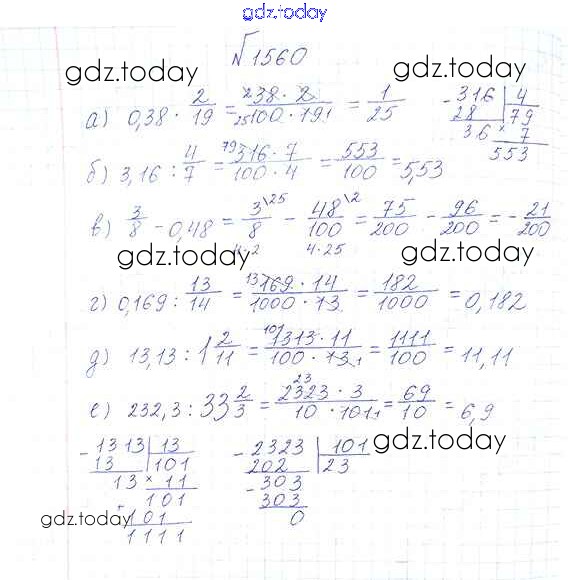 gdz.today
№1560
gdz.today
gdz.today
а) 0,38 · 2/19 = 38 · 2 / 100 · 19 = 1/25
- 316 | 4
28 | 79
36 × 7
553
б) 3,16 : 4/7 = 316 · 7 / 100 · 4 = 553/100 = 5,53
в) 3/8 - 0,48 = 3/8 \25 - 48/100 \2 = 75/200 - 96/200 = - 21/200
4·2 4·25
gdz.today
gdz.today
г) 0,169 : 13/14 = 169 · 14 / 1000 · 13 = 182/1000 = 0,182
д) 13,13 : 1 2/11 = 1313 · 11 / 100 · 13 = 1111/100 = 11,11
е) 232,3 : 33 2/3 = 2323 · 3 / 10 · 101 = 69/10 = 6,9
- 1313 | 13
13 | 101
13 × 11
101
+ 101
1111
- 2323 | 101
202 | 23
- 303
303
0
gdz.today
gdz.today